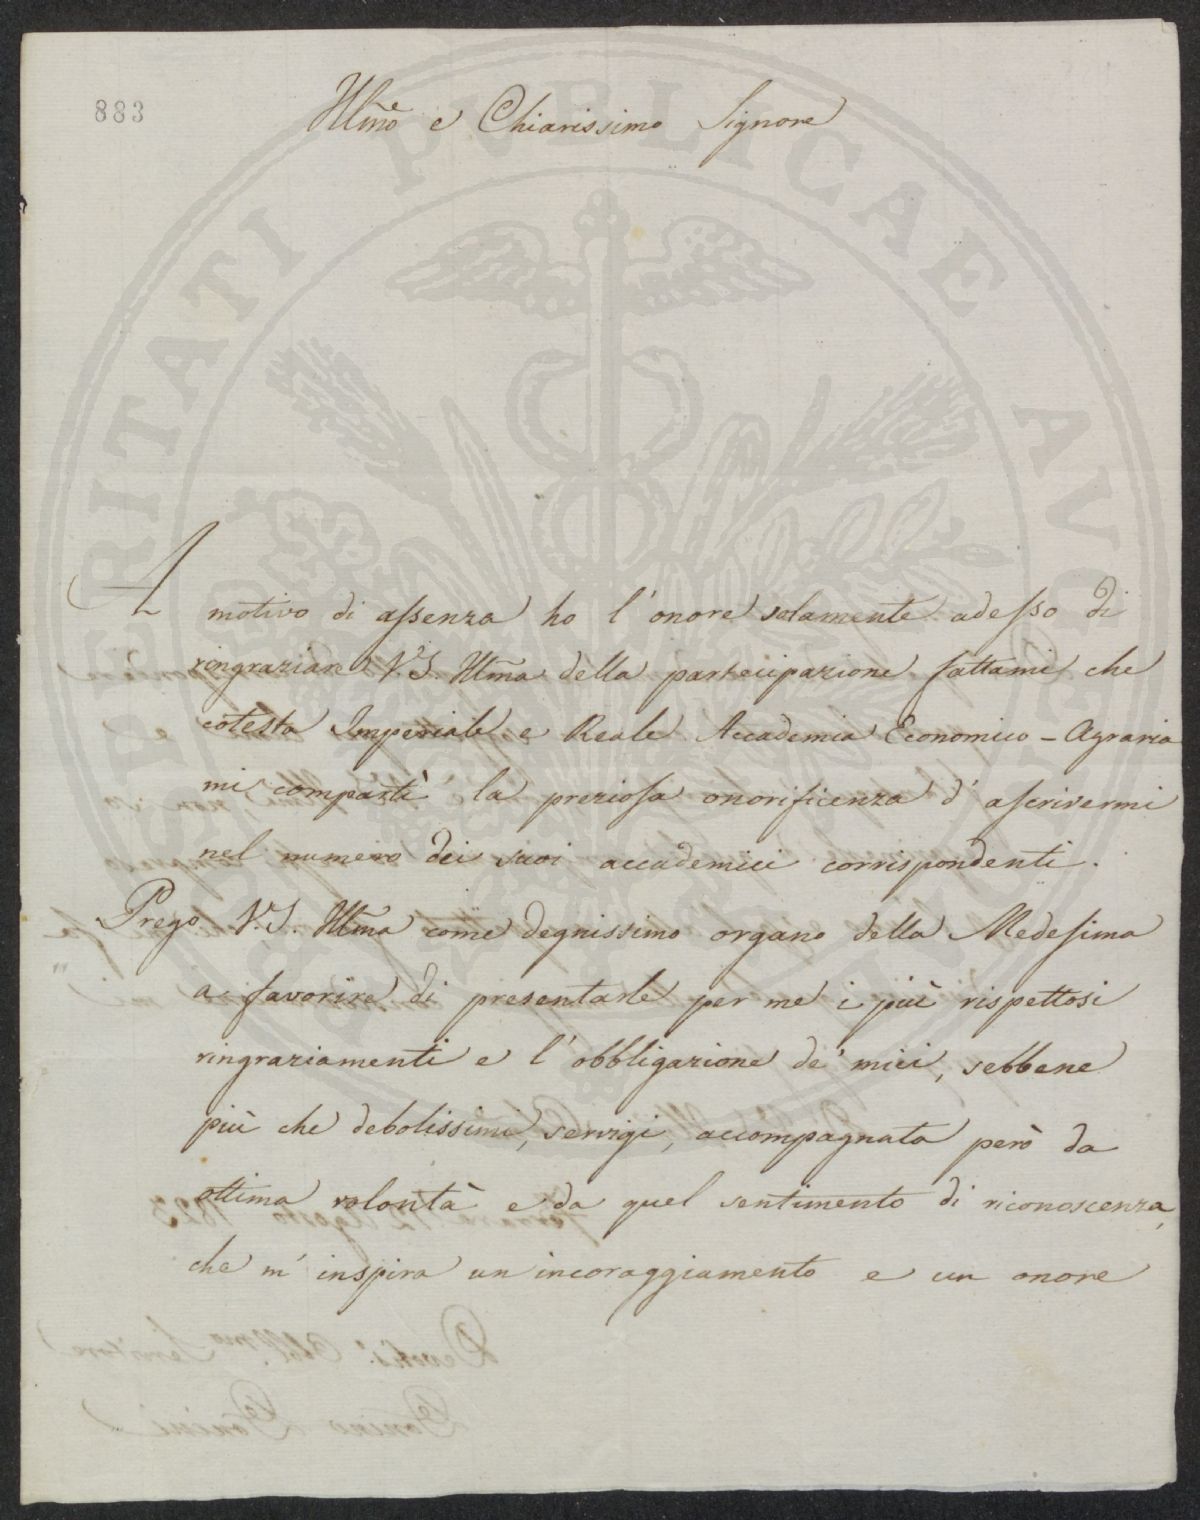 883
Illmo e Chiarissimo Signore
A motivo di assenza ho l'onore solamente adesso di
ringraziare V.S. Illma della partecipazione fattami che
cotesta Imperiale e Reale Accademia Economico-Agraria
mi compartì la preziosa onorificenza d'ascrivermi
nel numero dei suoi accademici corrispondenti.
Prego V.S. Illma come degnissimo organo della Medesima
a favorire di presentarle per me i più rispettosi
ringraziamenti e l'obbligazione de' miei, sebbene
più che debolissimi, servigi, accompagnata però da
ottima volontà e da quel sentimento di riconoscenza,
che m'inspira un incoraggiamento e un onore
PROSPERITATI PVBLICAE AVGENDAE